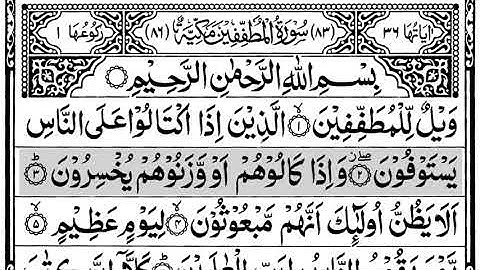 اٰیَاتُهَا ٣٦ (٨٣) سُوْرَةُ الْمُطَفِّفِیْنَ مَكِّیَّةٌ (٨٦) رُكُوْعُهَا ١
بِسْمِ اللّٰهِ الرَّحْمٰنِ الرَّحِیْمِ
وَیْلٌ لِّلْمُطَفِّفِیْنَ ۙ﴿١﴾ الَّذِیْنَ اِذَا اكْتَالُوْا عَلَی النَّاسِ
یَسْتَوْفُوْنَ ﴿٢﴾ۖ وَ اِذَا كَالُوْهُمْ اَوْ وَّزَنُوْهُمْ یُخْسِرُوْنَ ﴿٣﴾ؕ
اَلَا یَظُنُّ اُولٰٓئِكَ اَنَّهُمْ مَّبْعُوْثُوْنَ ۙ﴿٤﴾ لِیَوْمٍ عَظِیْمٍ ۙ﴿٥﴾